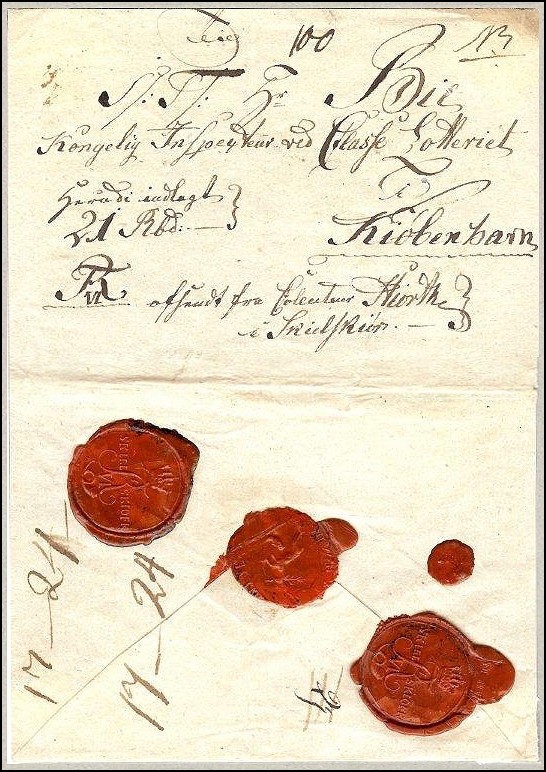 100
S: T: Hr Bie
Kongelig Inspecteur ved Classe Lotteriet
Herudi indlagt
21 Rbd:
Kiøbenhavn
FR
VI
afsendt fra Collecteur Hiorth
i Skielskiør.
17-24
17-24